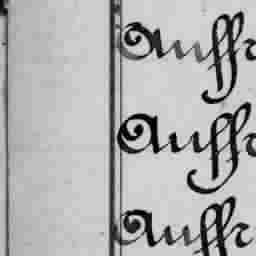 Auffr
Auffr
Auffr